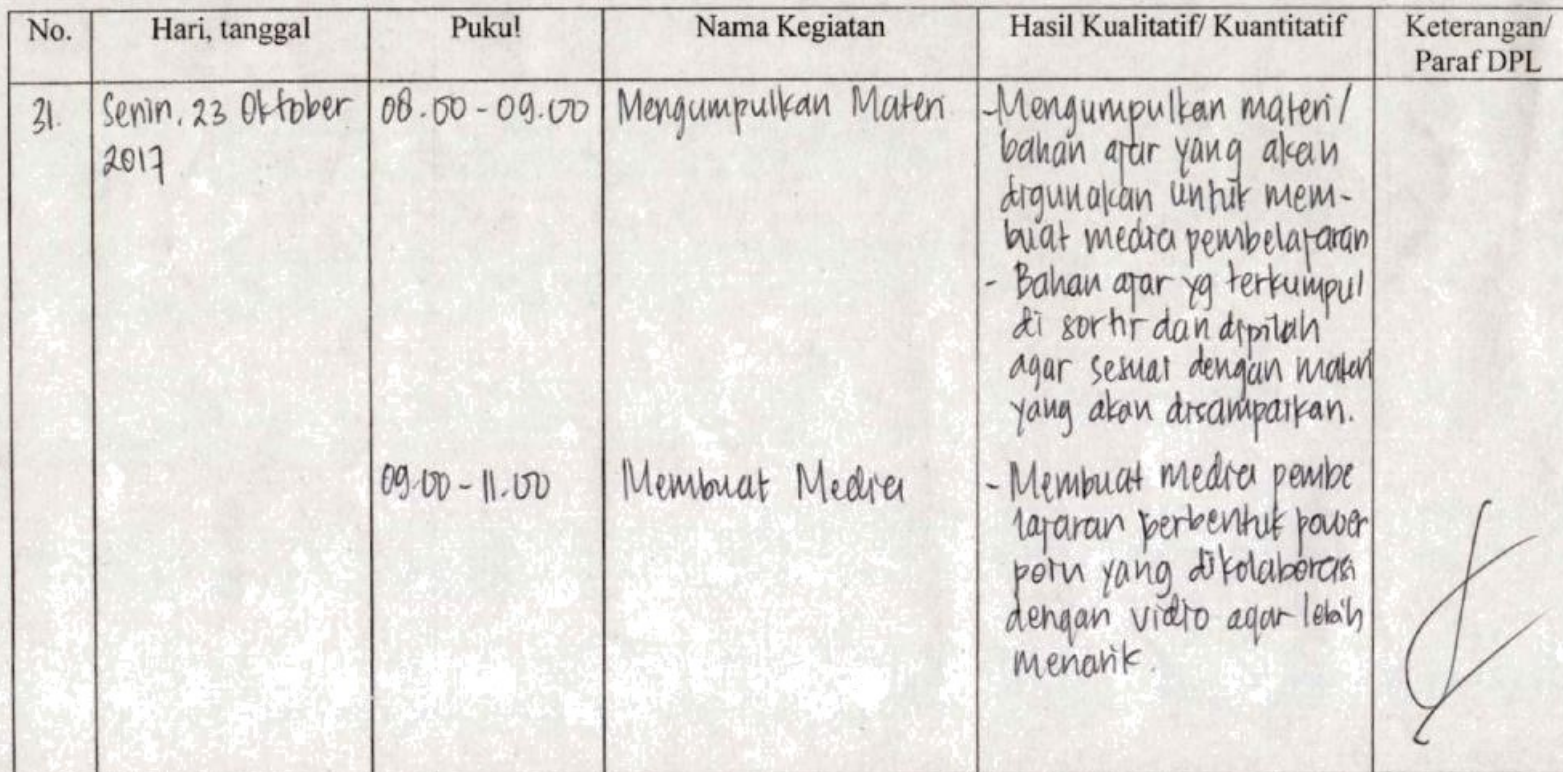 No. Hari, tanggal Pukul Nama Kegiatan Hasil Kualitatif/ Kuantitatif Keterangan/
Paraf DPL
31. Senin, 23 Oktober 08.00 - 09.00 Mengumpulkan Materi - Mengumpulkan materi/
2017 bahan ajar yang akan
digunakan untuk mem-
buat media pembelajaran
- Bahan ajar yg terkumpul
di sortir dan dipilah
agar sesuai dengan materi
yang akan disampaikan.
09.00 - 11.00 Membuat Media - Membuat media pembe
lajaran berbentuk power
poin yang dikolaborasi
dengan vidio agar lebih
menarik.